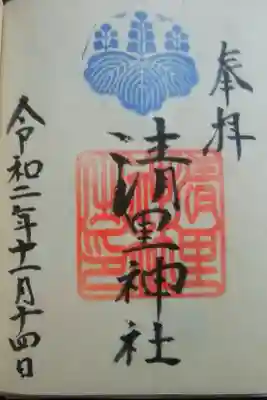 奉拝
清里神社
令和二年十一月十四日
清里神社之印